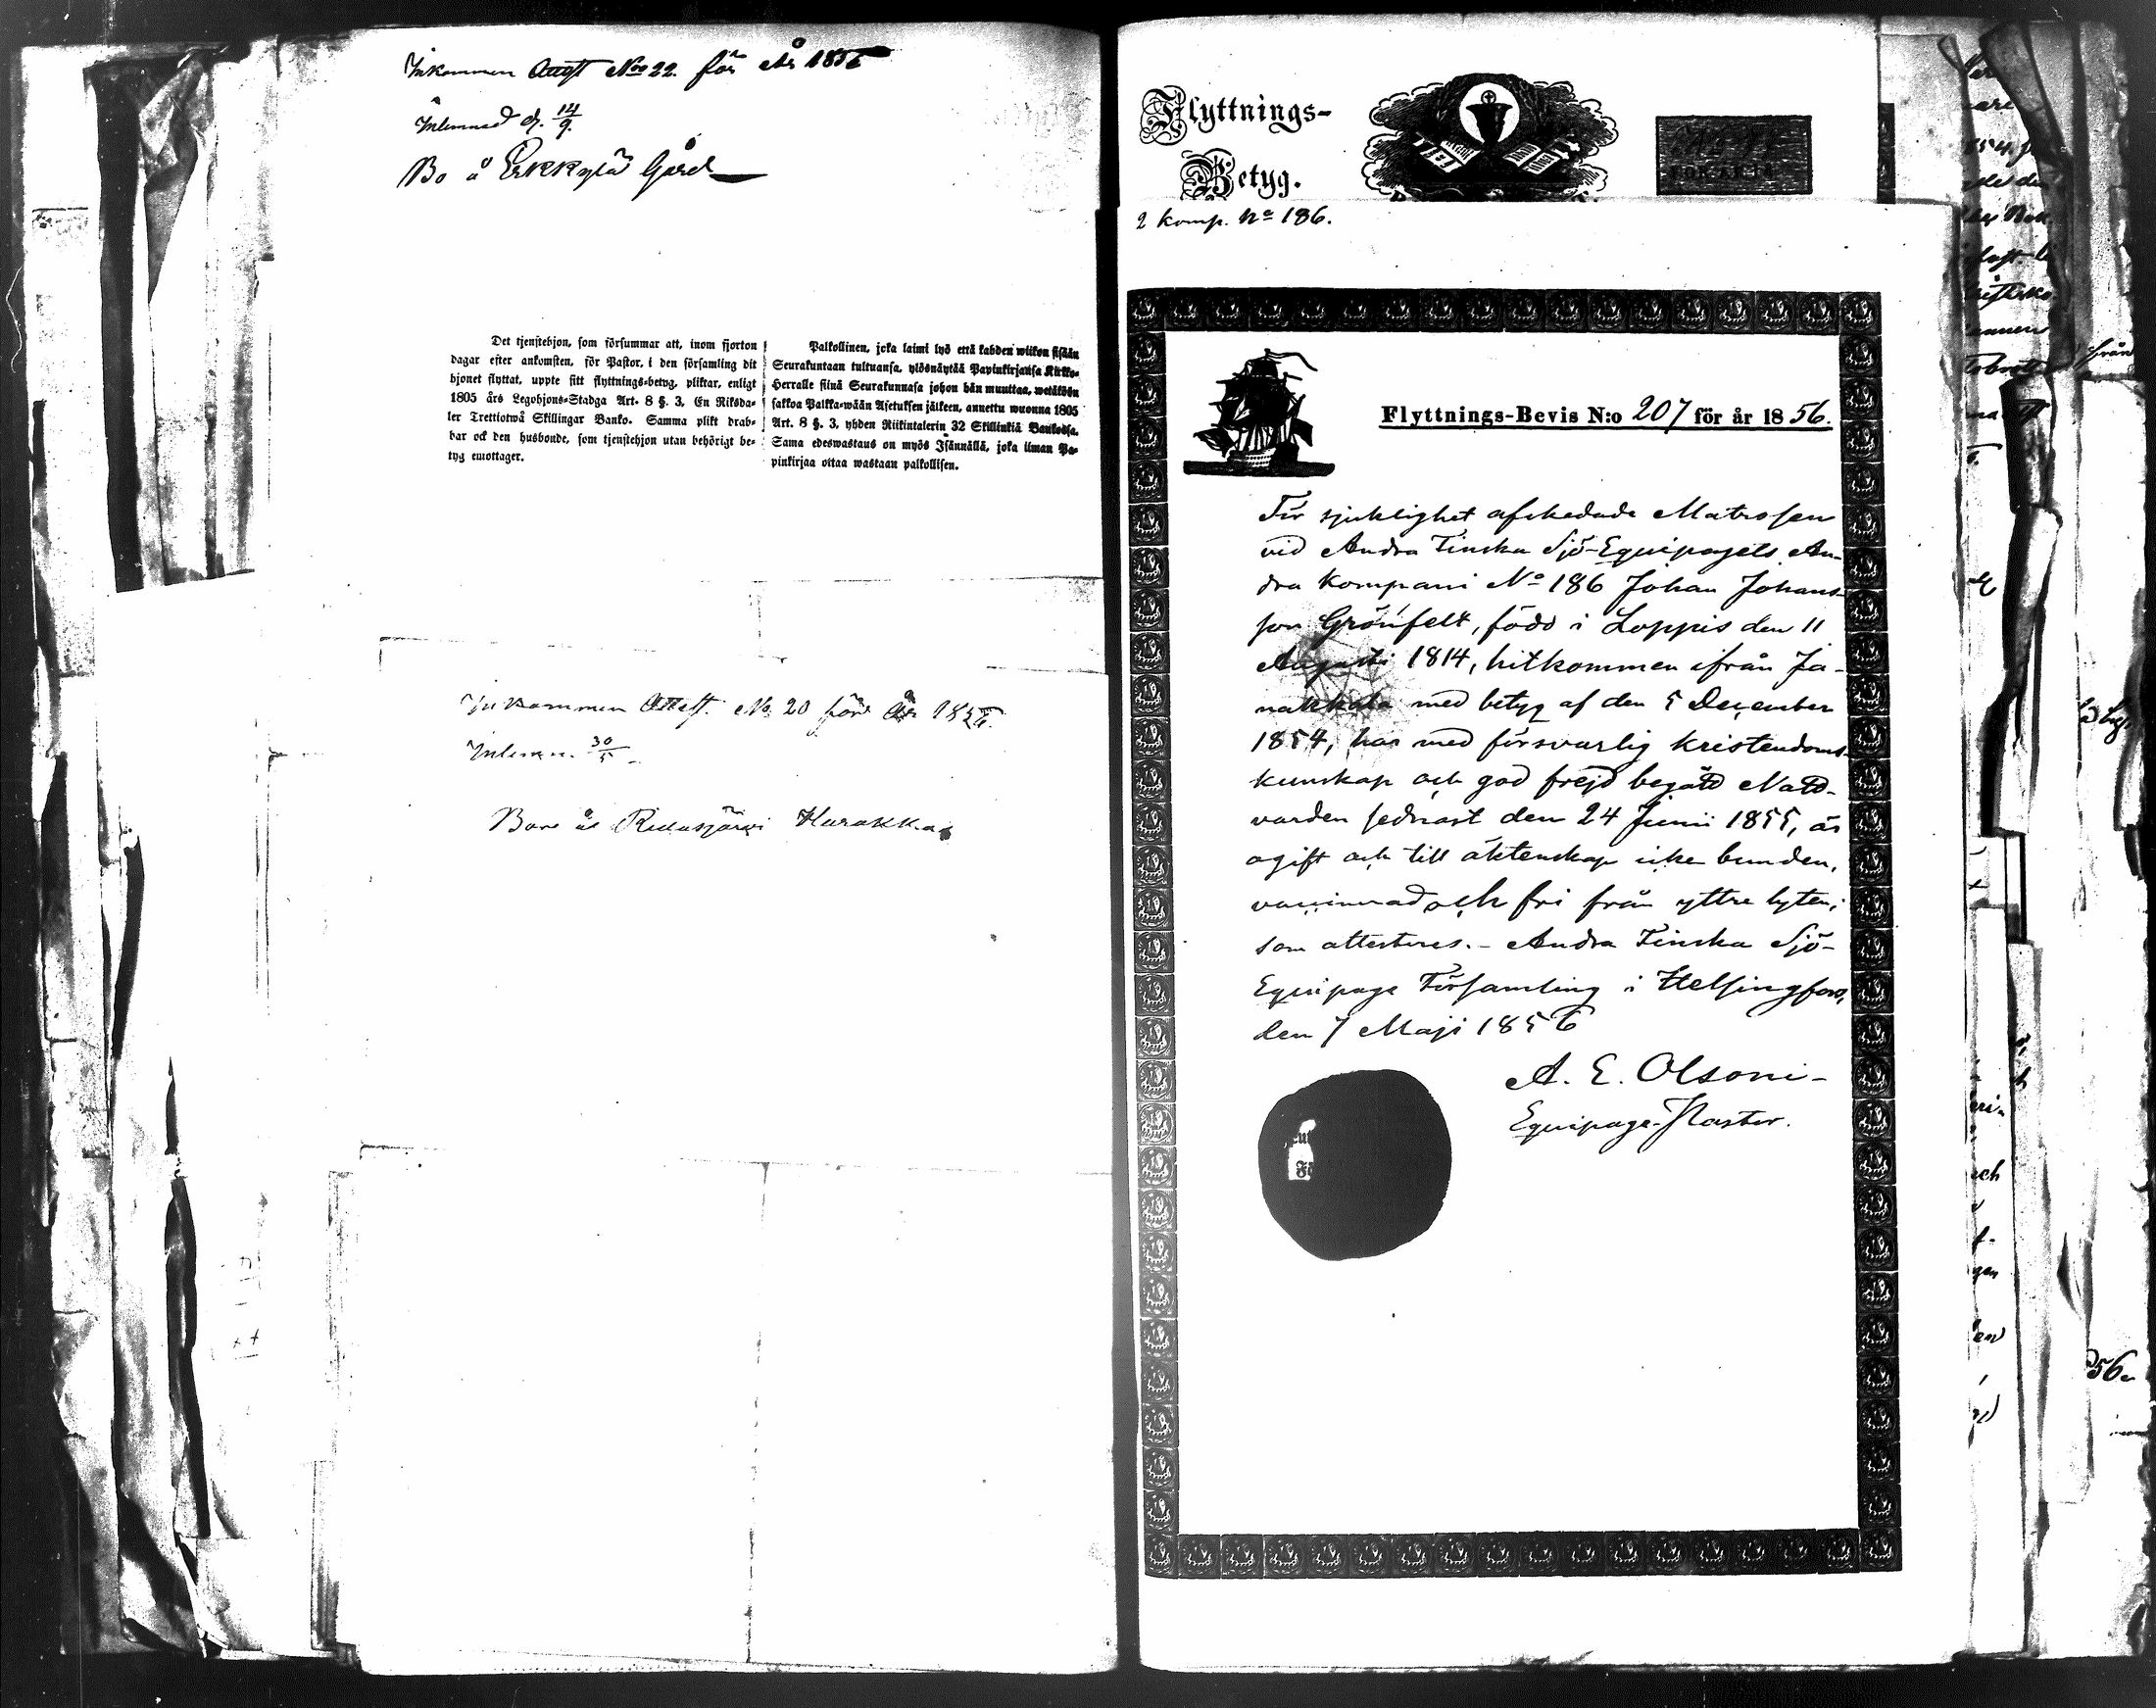 Inkommen Attest No 22. för År 1856
Inlemnad d. 14/9.
Bo å Erkkylä Gård
Det tjenstehjon, som försummar att, inom fjorton
dagar efter ankomsten, för Pastor, i den församling dit
hjonet flyttat, uppte sitt flyttnings-betyg, pliktar, enligt
1805 års Legohjons-Stadga Art. 8 §. 3, En Riksda-
ler Trettiotwå Skillingar Banko. Samma plikt drab-
bar ock den husbonde, som tjenstehjon utan behörigt be-
tyg emottager.
Palkollinen, joka laimi lyö että kahden wiikon sisään
Seurakuntaan tultuansa, ylösnäytää Papinkirjansa Kirkko-
Herralle siinä Seurakunnasa johon hän muuttaa, wetäköön
sakkoa Palkka-wään Asetuksen jälkeen, annettu wuonna 1805
Art. 8 §. 3, yhden Riikintalerin 32 Skillinkiä Bankossa.
Sama edeswastaus on myös Isännällä, joka ilman Pa-
pinkirjaa ottaa wastaan palkollisen.
Inkommen Attest. No 20 före år 1856.
Inlemn. 30/5
Bor å Ridasjärvi Harakka
Flyttnings-
Betyg.
2 Komp. No 186.
Flyttnings-Bevis N:o 207 för år 1856.
För sjuklighet afskedade Matrosen
vid Andra Finska Sjö-Equipagets An-
dra Kompani No 186 Johan Johans-
son Grönfelt, född i Loppis den 11
Augusti 1814, hitkommen ifrån Ja-
nakkala med betyg af den 5 December
1854, har med försvarlig kristendoms-
kunskap och god frejd begått Natt-
varden sednast den 24 Junii 1855, är
ogift och till äktenskap icke bunden,
vaccinerad och fri från yttre lyten;
som attesteres. - Andra Finska Sjö-
Equipage Församling i Helsingfors,
den 7 Maji 1856
A. E. Olsoni-
Equipage-Pastor.